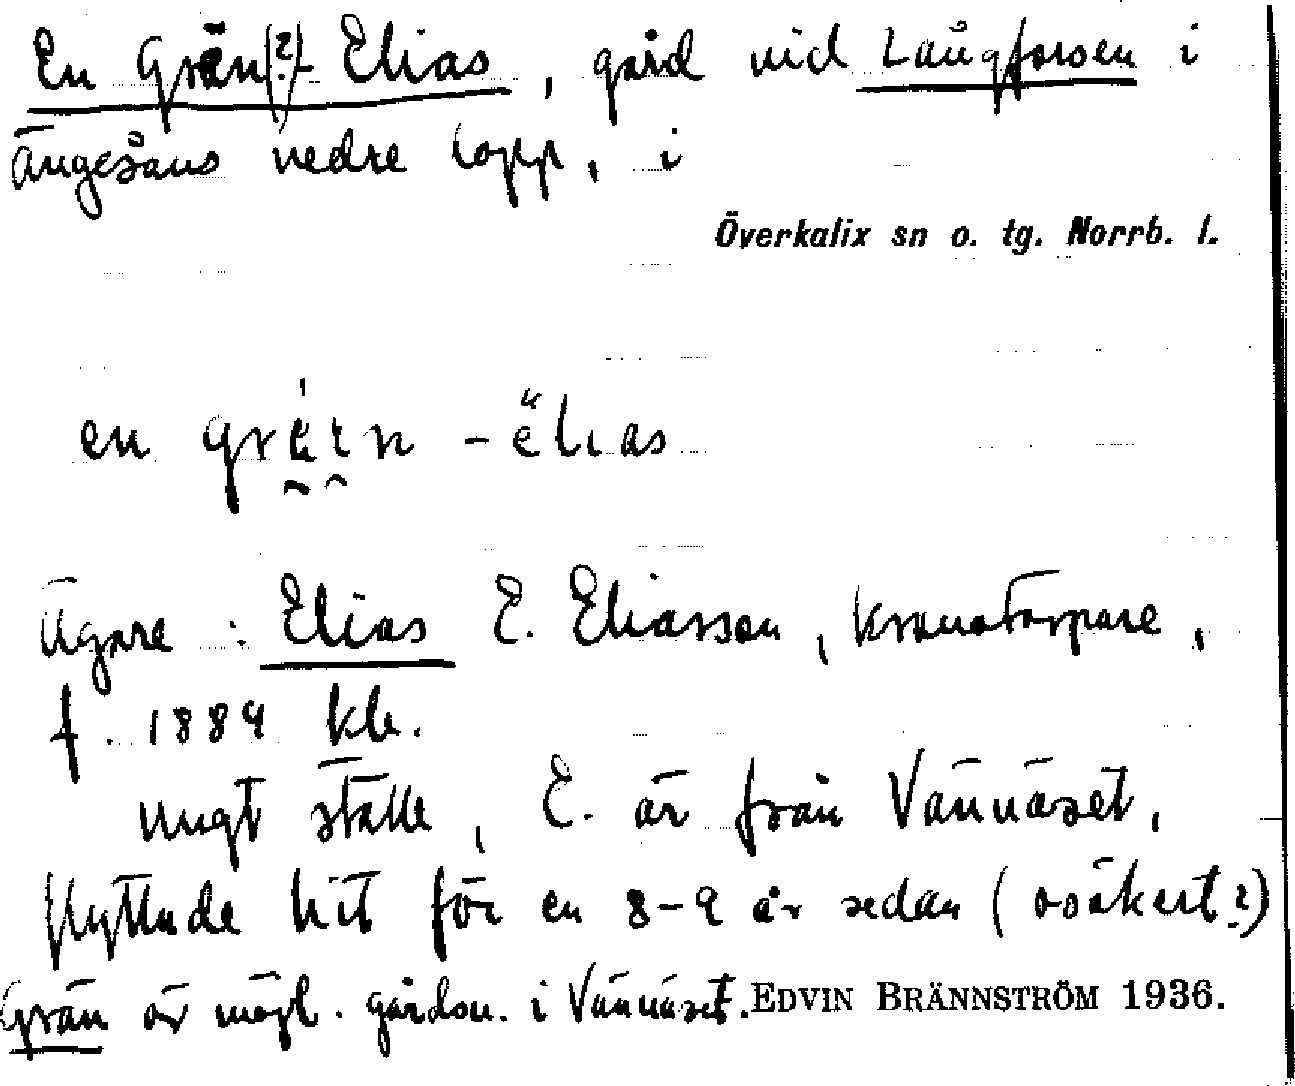 En Grän(?)-Elias, gård vid Långforsen i
Ängesåns nedre lopp, i
Överkalix sn o. tg. Norrb. l.
en -ëlias
Ägare: Elias E. Eliasson, kronotorpare,
f. 1889 klx.
nygt ställe, E. är från Vännäset,
flyttade hit för en 8-9 år sedan (osäkert?)
Grän är möjl. gårdsn. i Vännäset. EDVIN BRÄNNSTRÖM 1936.